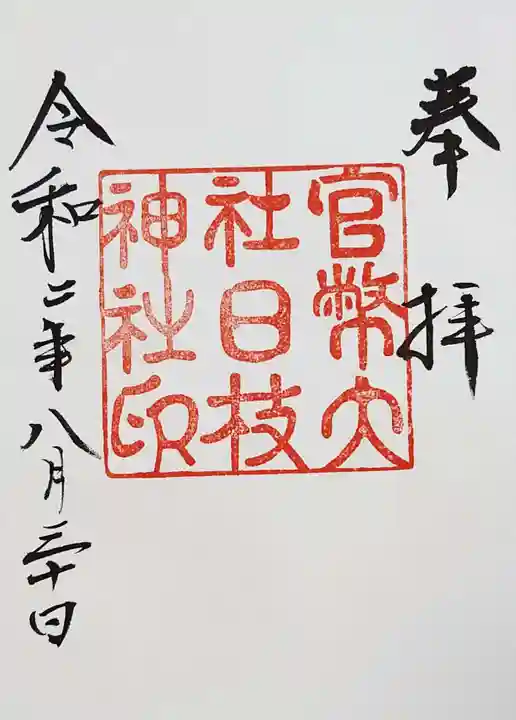 奉拝
官幣大
社日枝
神社印
令和二年八月三十日